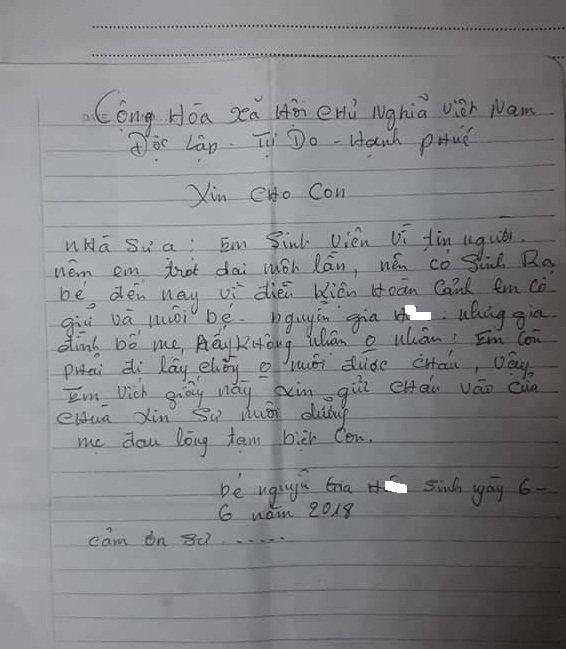 Cộng Hòa xã Hội chủ Nghĩa việt Nam
Độc Lập - Tự Do - Hạnh phúc
Xin cho Con
nHà Sư ạ: Em Sinh viên vì tin người.
nêm em trót dại môt lần, nên có Sinh Ra
bé, đến nay vì điều kiên Hoàn Cảnh em có
giữ và nuôi bé - nguyên gia H . nhưng gia
đình bố mẹ, ấy không nhân o nhân: Em còn
phải đi lấy chồng o nuôi được cháu, vậy
Em viết giấy này xin gửi cháu vào cửa
chuà xin Sư nuôi dưỡng
mẹ đau lòng tạm biêt Con.
bé nguyễ Gia H Sinh gày 6-
6 năm 2018
cảm ơn sư ......